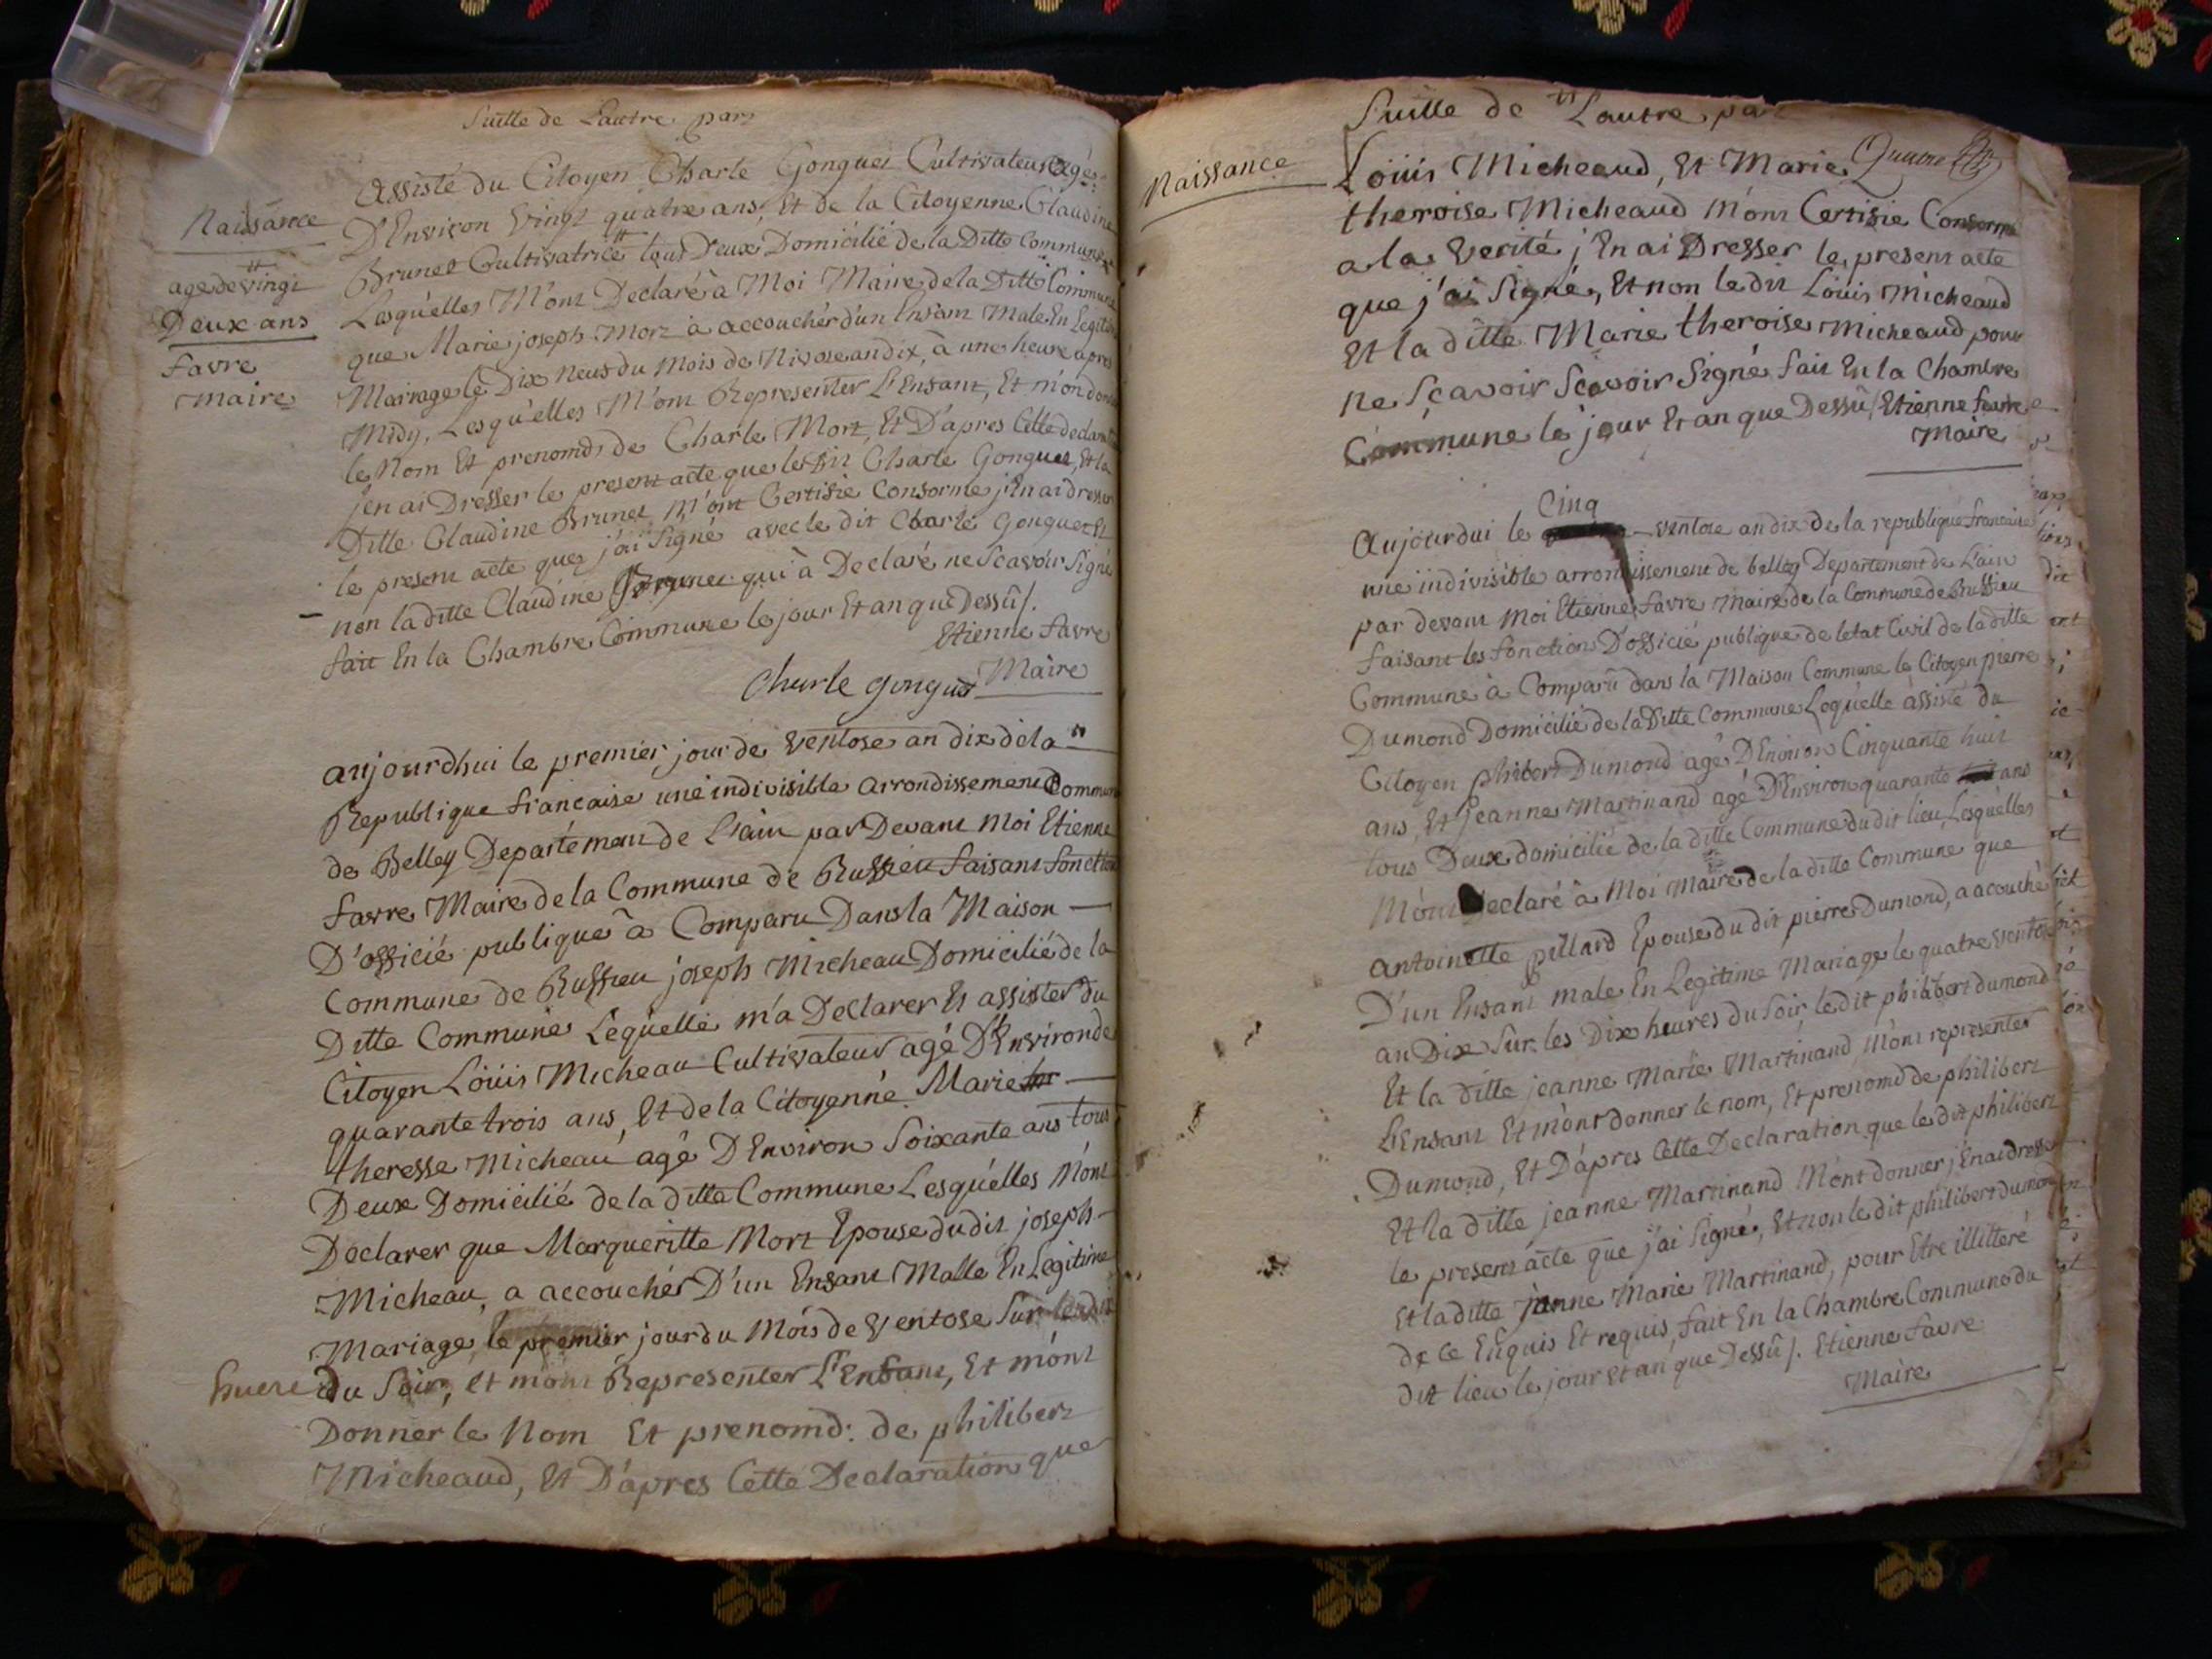 Suitte de Lautre part
Assisté du Citoyen Charle Gonguet Cultivateur Agés
Naissance
D'Environ Vingt quatre ans, Et de la Citoyenne Claudine
Brunet Cultivatrice tous Deux Domicilié de la Ditte Commune
age de vingt
Deux ans
favre
maire
Lesqu'elles M'ont Declaré à Moi Maire de la Ditte Commune
que Marie joseph Mort à accouchér d'un Ensant Male En Legitim
Mairage le Dix neus du Mois de Nivose an dix, à une heure apres
Midy, Lesqu'elles M'ont Representer L'Ensant, Et m'on donn
le Nom Et prenomd de Charle Mort, Et D'apres Cette declara
jen ai Dresser le present acte que le dit Charle Gonguet, Et la
Ditte Claudine Brunet M'ont Certisie Consorme j'En ai dresser
le present acte que j'ai Signé avec le dit Charle Gonguet Et
non la ditte Claudine Brunet qui à Declaré ne Scavoir Signé
fait En la Chambre Commune le jour Et an que Dessu /.
Etienne favre
Maire
Charle gonguet
aujourdhui le premier jour de Ventose an dix de la
Republique francaise une indivisible arrondissement Commun
de Belley Departement de L'ain par Devant Moi Etienne
favre Maire de la Commune de Russieu faisant fonction
D'ossicié publique à Comparu Dans la Maison
Commune de Russieu joseph Micheau Domicilié de la
Ditte Commune Lequelle m'a Declarer Et assister du
Citoyen Loüis Micheau Cultivateur agé D'Environ de
quarante trois ans, Et de la Citoyenne Marie
theresse Micheau agé D'Environ Soixante ans tous
Deux Domicilié de la ditte Commune Lesquélles M'ont
Declarer que Margueritte Mort Epouse du dit joseph
Micheau, a accouchér D'un Ensant Malle En Legitime
Mariage le premier jour du Mois de Ventose Sur
heure du Soir, et m'ont Representer L'Ensant, Et m'ont
Donner le Nom Et prenomd: de philibert
Micheaud, Et D'apres Cette Declaration que
Suitte de Lautre par
Naissance
Quatre
Loüis Micheaud, Et Marie
theroise Micheaud M'ont Certisie Consorme
a la Verité j'En ai Dresser le present acte
que j'ai Signé, Et non le dit Loüis Micheaud
Et la ditte Marie theroise Micheaud pour
ne Sçavoir Scavoir Signé fait En la Chambre
Commune le jour Et an que Dessu / Etienne favre
Maire
Cinq
Aujourdui le ventose an dix de la republique francaise
une indivisible arrondissement de belley Departement de L'ain
par devant Moi Etienne favre Maire de la Commune de Russieu
faisant les fonctions D'ossicié publique de letat Civil de la ditte
Commune à Comparu dans la Maison Commune le Citoyen pierre
Dumond Domicilié de la Ditte Commune Lequelle assisté du
Citoyen philibert Dumond agé D'Environ Cinquante huit
ans, Et Jeanne Martinand agé D'Environ quarante ans
tous Deux domicilié de la ditte Commune du dit lieu, Lesquelles
M'ont Declaré à Moi Maire de la ditte Commune que
antoinette pillard Epouse du dit pierre Dumond, a accouché
D'un Ensant male En Legitime Mariage le quatre ventose
an Dix Sur les Dix heures du Soir le dit philibert dumond
Et la ditte jeanne Marie Martinand M'ont representer
L'Ensant Et m'ont donner le nom, Et prenomd de philibert
Dumond, Et D'apres Cette Declaration que le dit philibert
Et la ditte jeanne Martinand M'ont donner j'En ai dresser
le present acte que j'ai Signé, Et non le dit philibert dumond
Et la ditte janne Marie Martinand, pour Etre illitteré
de Ce Enquis Et requis, fait En la Chambre Commune du
dit lieu le jour Et an que Dessu /. Etienne favre
Maire